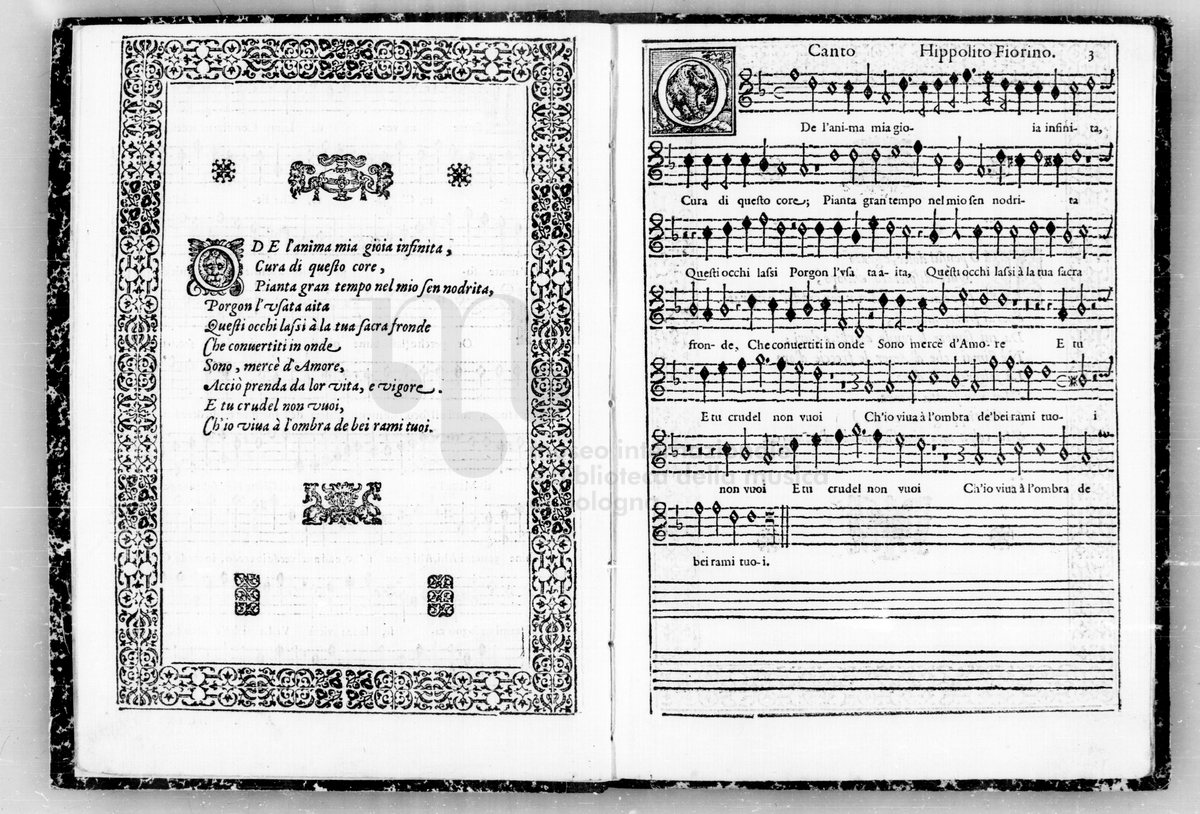 ODE l'anima mia gioia infinita,
Cura di questo core,
Pianta gran tempo nel mio sen nodrita,
Porgon l'vsata aita
Questi occhi lassi à la tua sacra fronde
Che conuertiti in onde
Sono, mercè d'Amore,
Acciò prenda da lor vita, e vigore.
E tu crudel non vuoi,
Ch'io viua à l'ombra de bei rami tuoi.
Canto Hippolito Fiorino. 3
O De l'ani-ma mia gio- ia infini- ta,
Cura di questo core; Pianta gran tempo nel mio sen nodri- ta
Questi occhi lassi Porgon l'vsa ta a- ita, Questi occhi lassi à la tua sacra
fron- de, Che conuertiti in onde Sono mercè d'Amo- re E tu
E tu crudel non vuoi Ch'io viua à l'ombra de'bei rami tuo- i
non vuoi E tu crudel non vuoi Ch'io viua à l'ombra de
bei rami tuo-i.
museo internazionale
biblioteca della musica
bologna